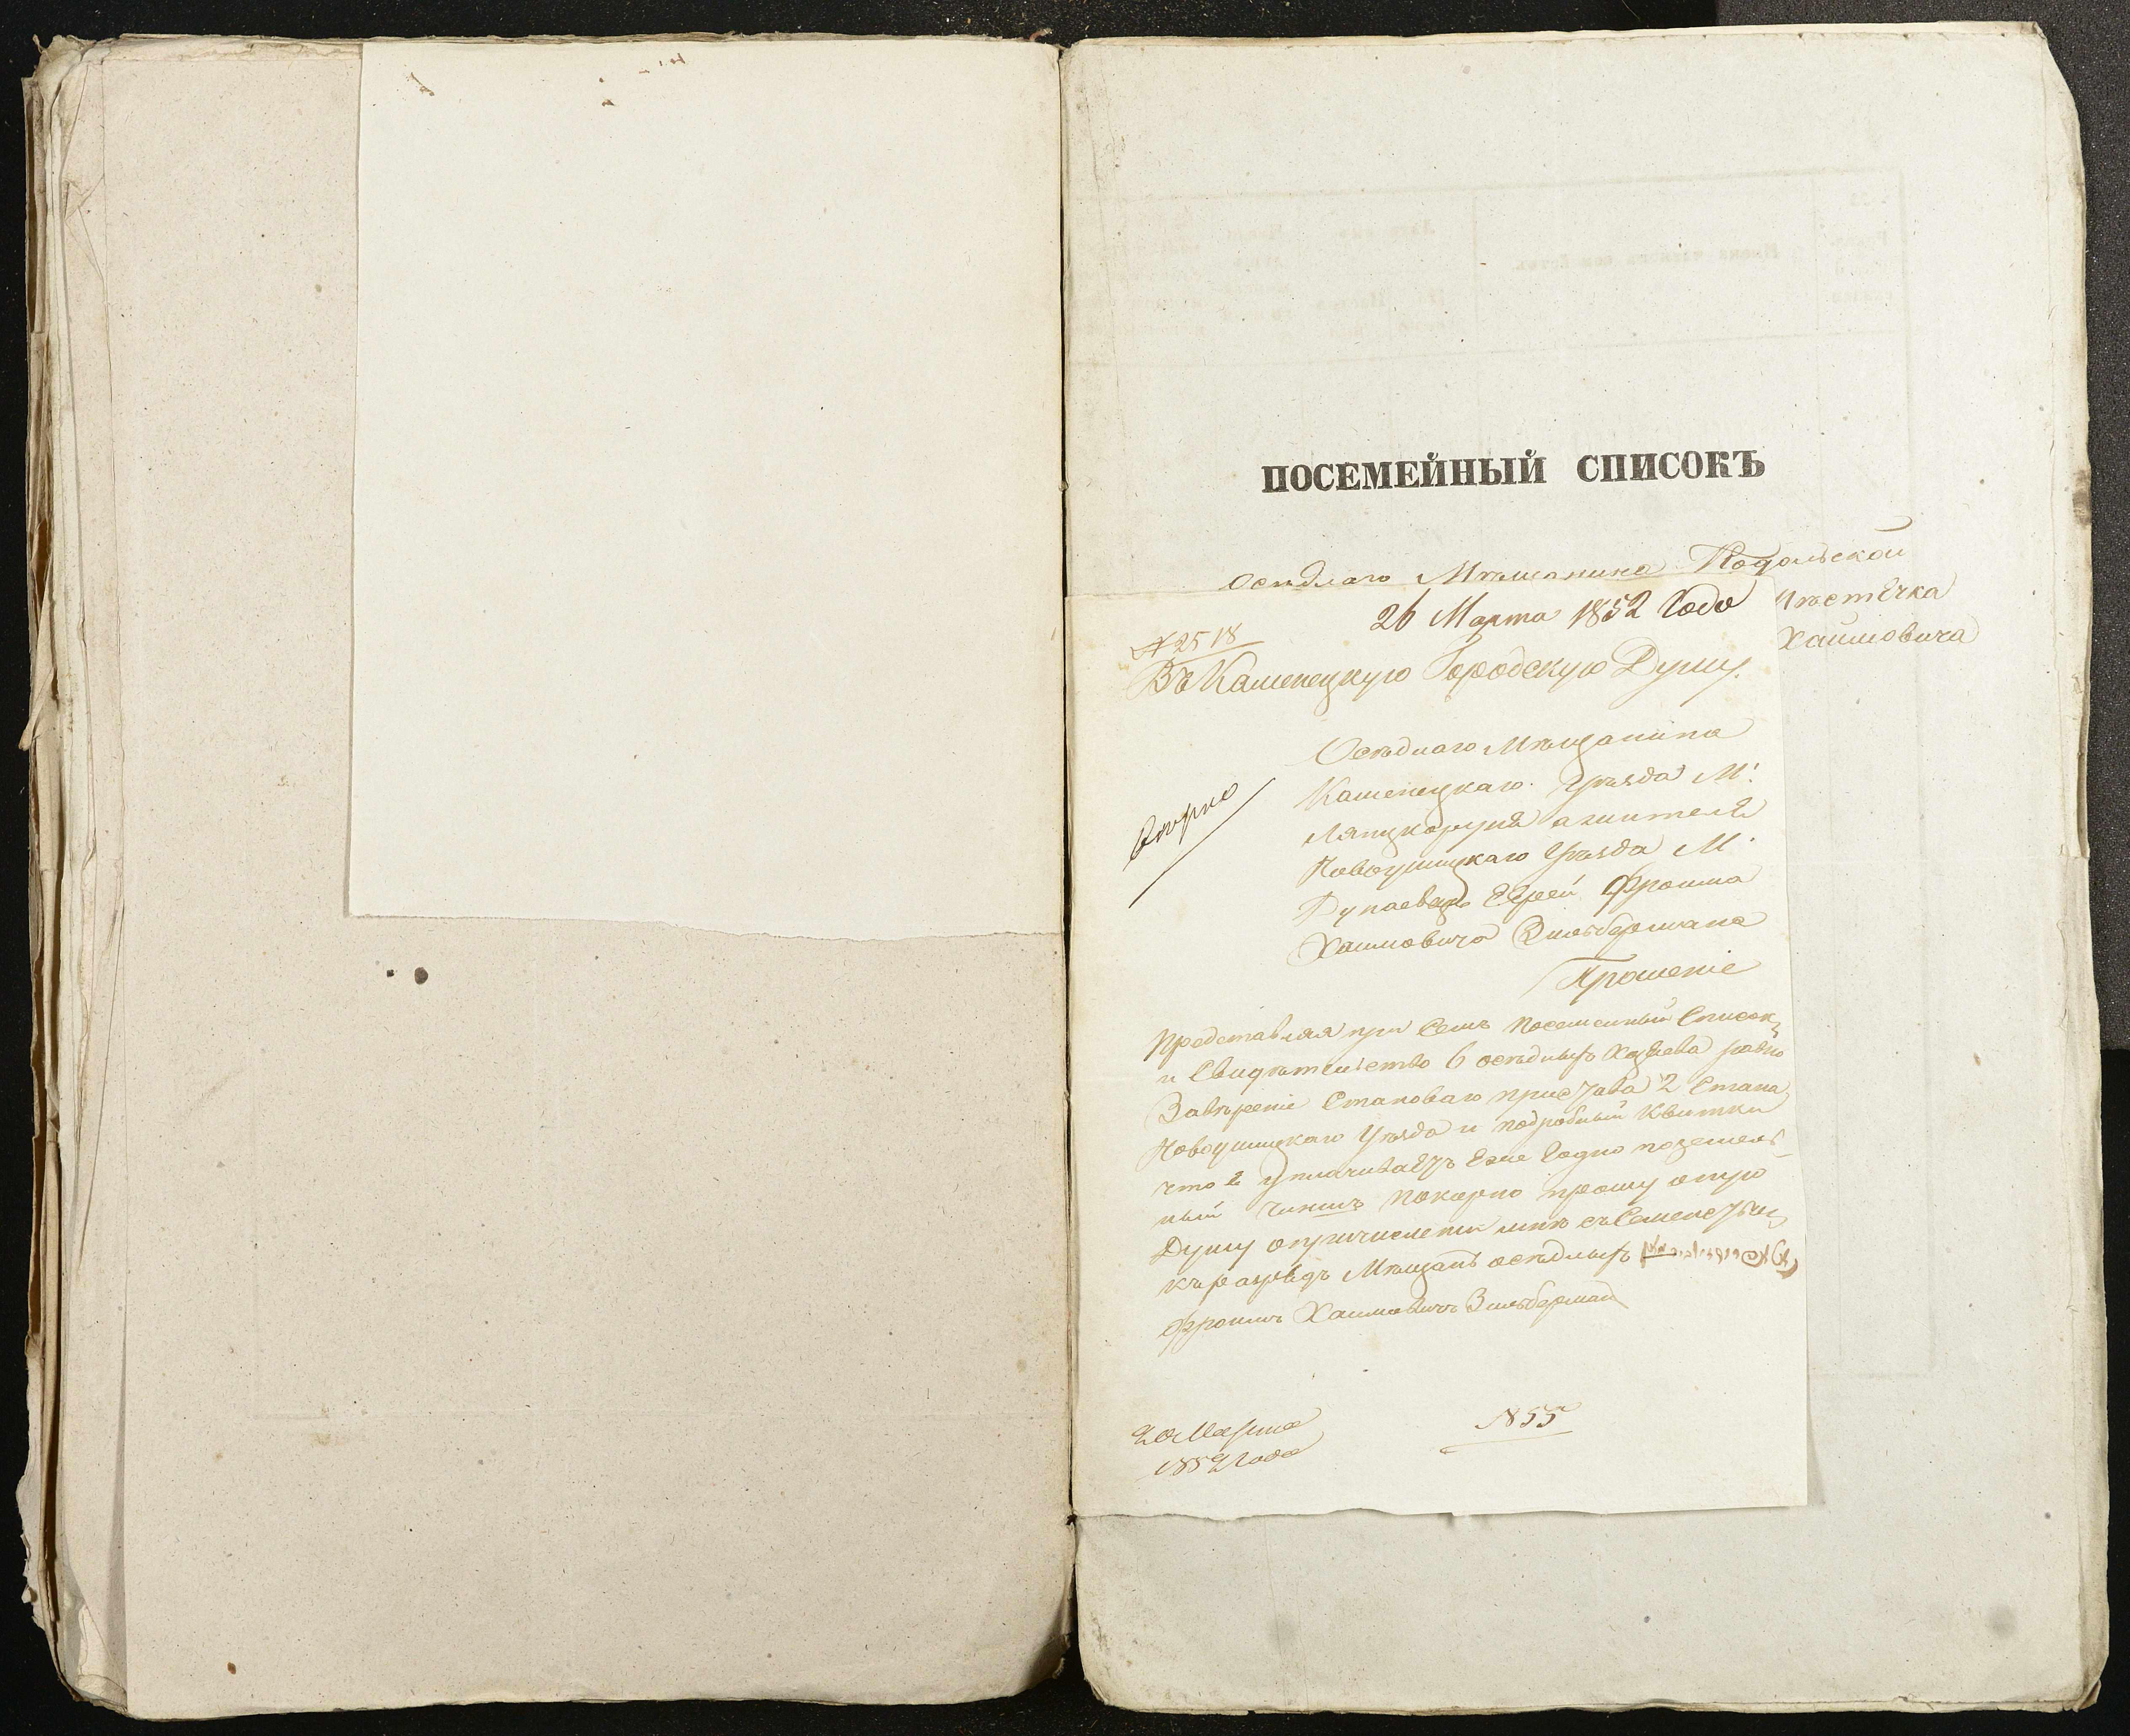 ПОСЕМЕЙНЫЙ СПИСОКЪ
Осѣдлаго Мѣщанина Подольской
мѣстечка
Хаимовича
26 Марта 1852 Года
№ 2518
Въ Каменецкую Городскую Думу.
Осѣдлаго Мѣщанина
Каменецкаго Уѣзда М:
Лянцкоруня а жителя
Новоушицкаго Уѣзда М.
Дунаевецъ Еврей Фроима
Хаимовича Зильбермана
Прошеніе
Представляя при семъ посемейный списокъ
и Свидѣтельство 6 осѣдлыхъ Хозяева равно
Завѣреніе Становаго пристава 2 Стана
Новоушицкаго Уѣзда и подробный Квитки
что я уплачиваетъ Еже Годно поземель-
ный чиншъ покорно прошу оную
Думу о причислении мнѣ съ Семейством
къ разрядъ Мѣщанъ осѣдлыхъ
Фроимъ Хаимовичъ Зильберман
20 Марта
1852 Года
№ 55